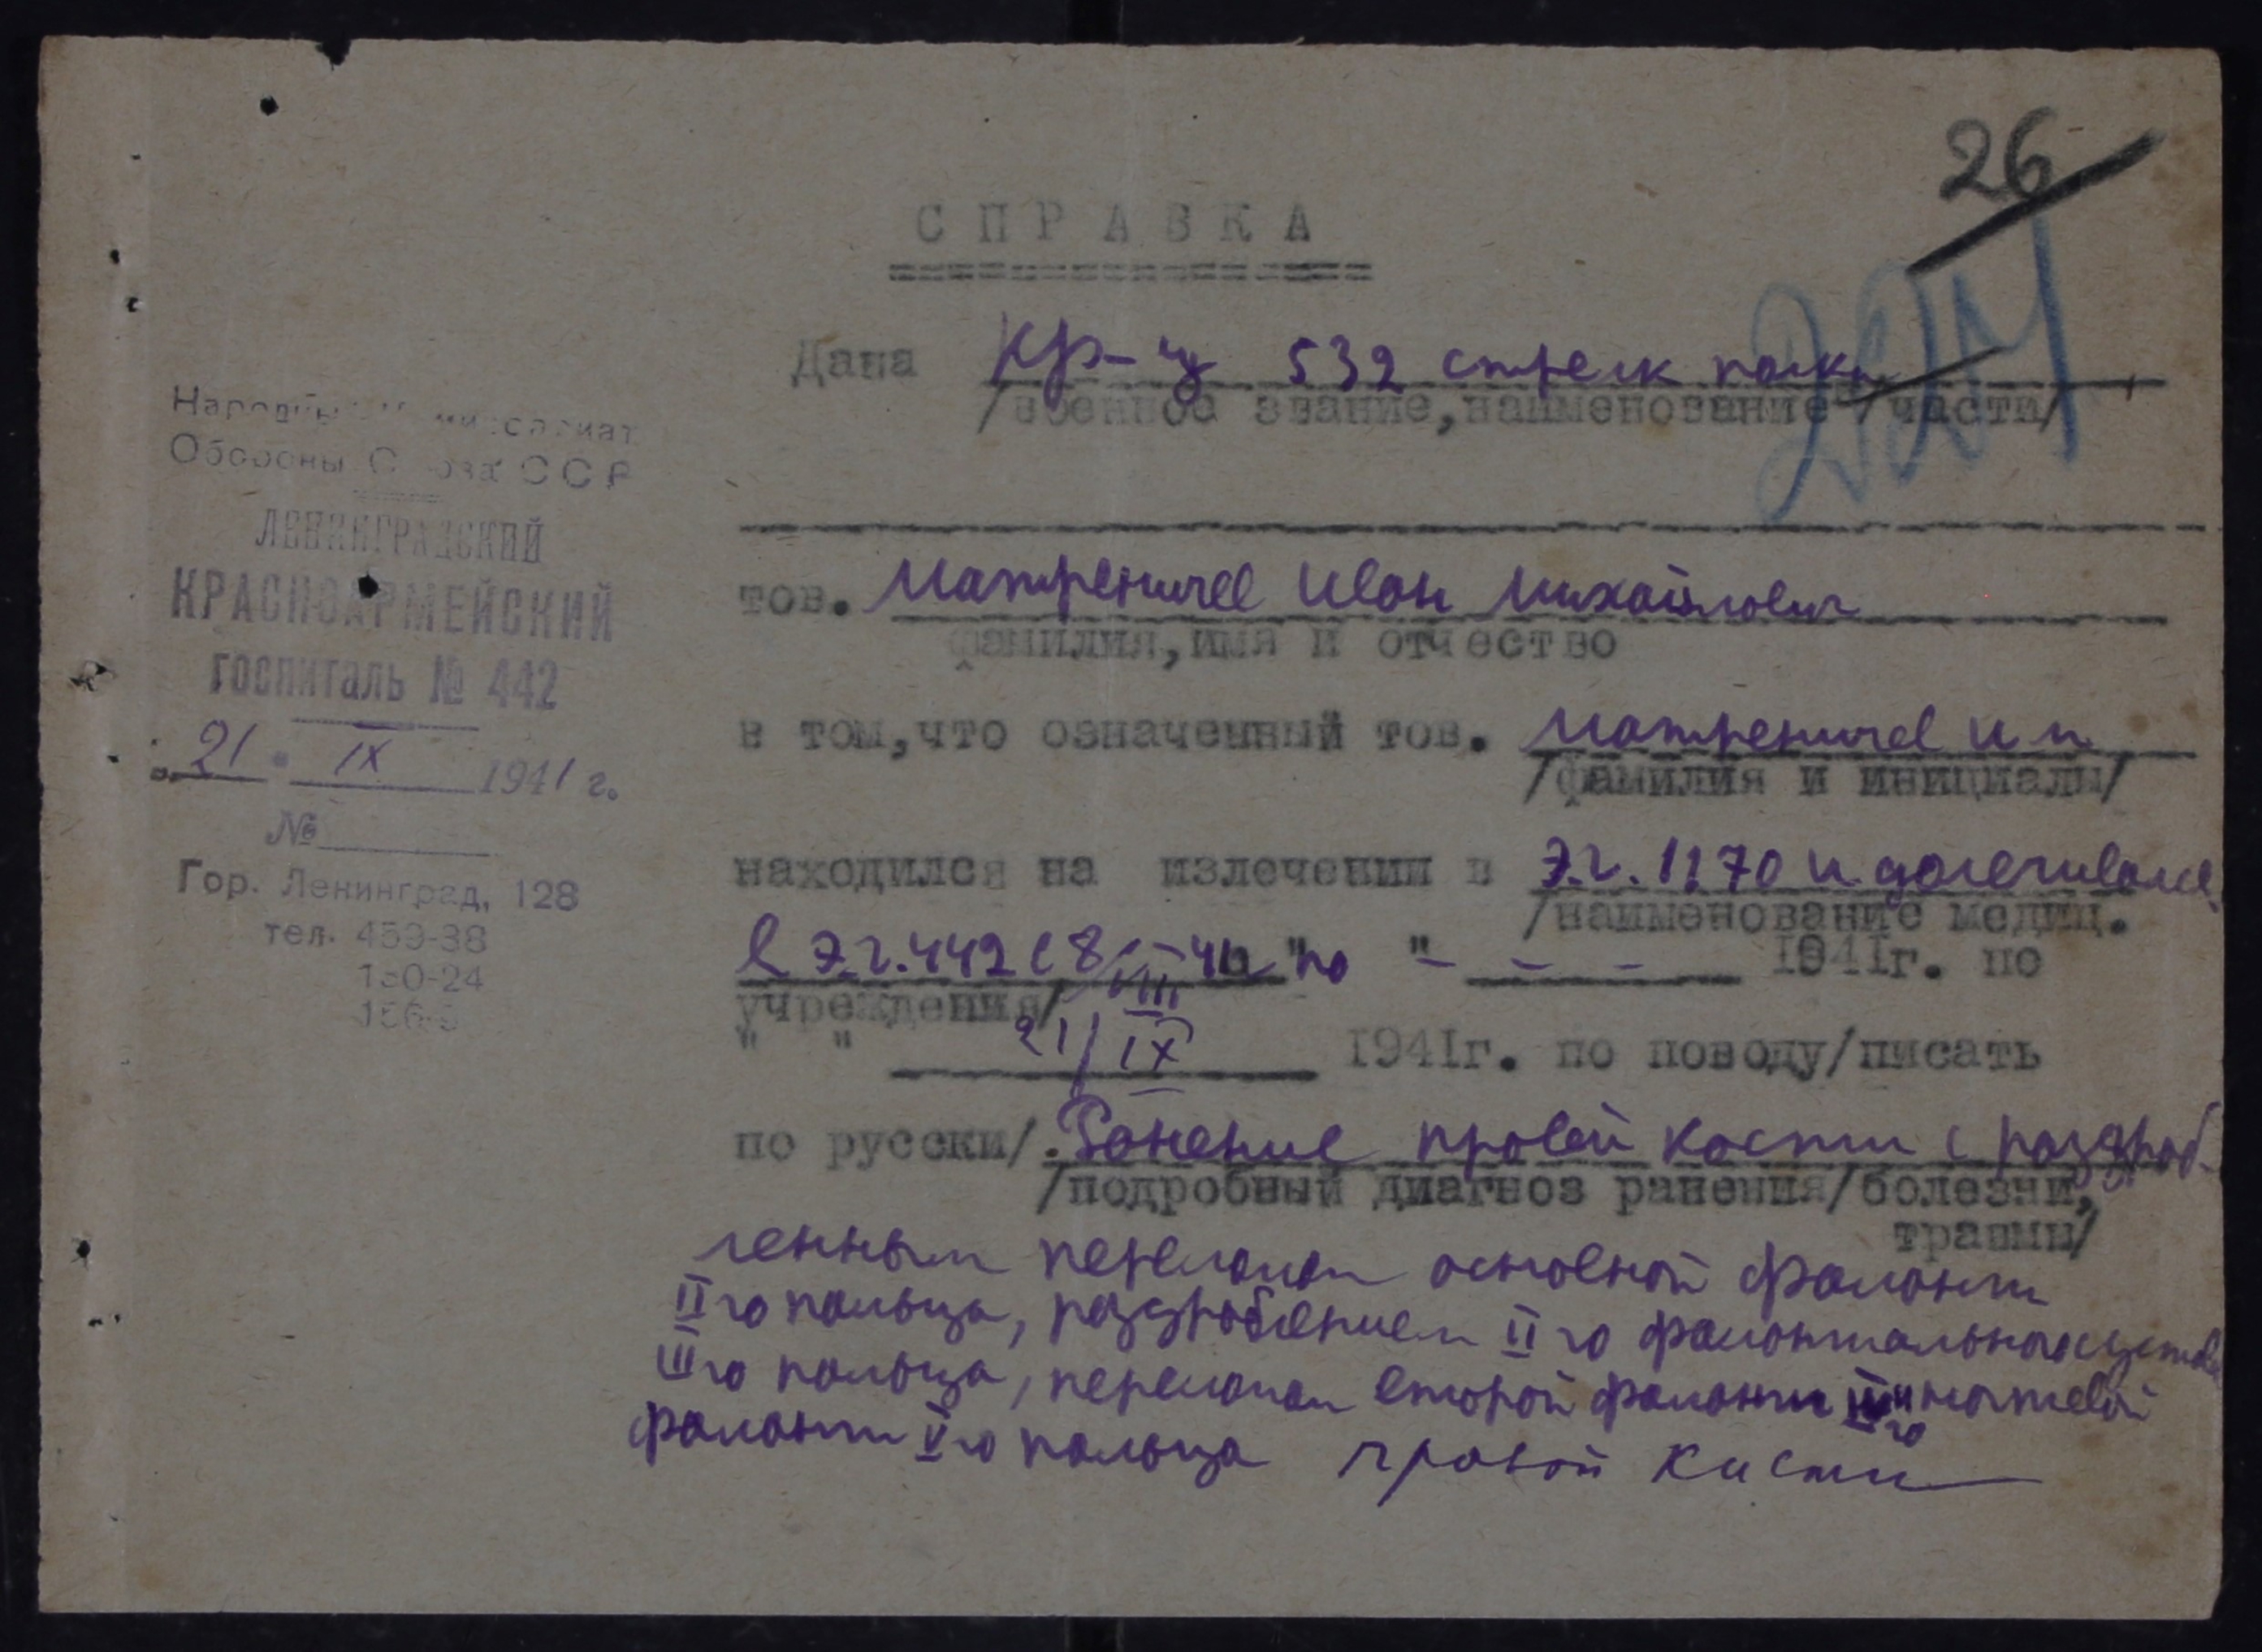 26
СПРАВКА
Дана Кр-цу 532 стрелк полка
/военное звание,наименование части/
Народный Комиссариат
Обороны Союза ССР
ЛЕНИНГРАДСКИЙ
КРАСНОАРМЕЙСКИЙ
ГОСПИТАЛЬ № 442
"21" IX 1941 г.
№
Гор. Ленинград, 128
тел. 459-38
130-24
тов. Матреничев Иван Михайлович
фамилия,имя и отчество
в том,что означенный тов. Матреничев И
/фамилия и инициалы/
находился на излечении в Э.Г. 1170 и долечивался
/наименование медиц.
в Э.Г. 442 с 8/VIII-41 по "- - - 1941г. по
учреждения/
" " 21/IX 1941г. по поводу/писать
по русски/. Ранение правой кисти с раздроб-
/подробный диагноз ранения/болезни,
травмы/
ленным переломом основной фаланги
II го пальца, раздроблением II го фалангиального сустава
III го пальца, перелом второй фаланги и ногтевой
фаланги V го пальца правой кисти